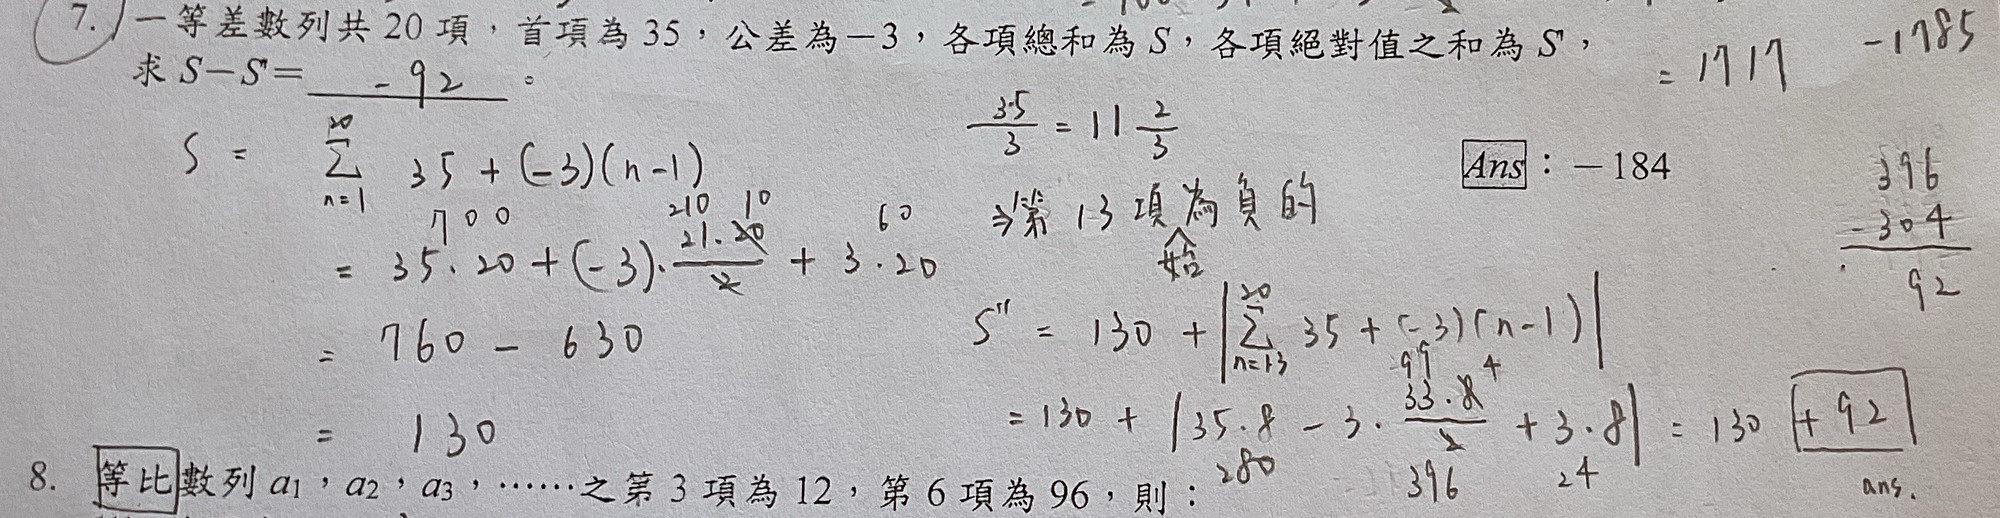 7. 一等差數列共 20 項，首項為 35，公差為 −3，各項總和為 S，各項絕對值之和為 S'，
求 S − S' = -92 。
= 1717 -1785
Ans：−184
S = \sum_{n=1}^{20} 35 + (-3)(n-1)
700 210 10 60
= 35·20 + (-3)·\frac{21·20}{2} + 3·20
= 760 - 630
= 130
\frac{35}{3} = 11\frac{2}{3}
⇒第 13 項始為負的
S'' = 130 + |\sum_{n=13}^{20} 35 + (-3)(n-1)|
99 4
= 130 + |35·8 - 3·\frac{33·8}{2} + 3·8| = 130 + 92
280 396 24 ans.
396
-304
92
8. 等比數列 a1，a2，a3，……之第 3 項為 12，第 6 項為 96，則：